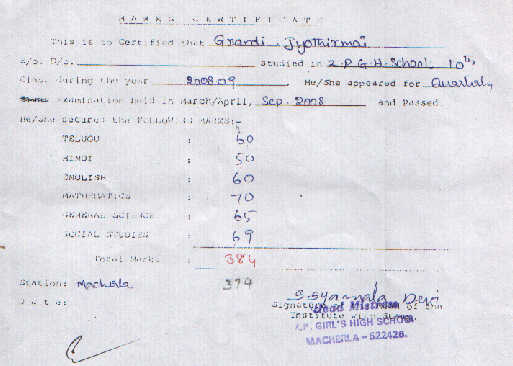 MARKS CERTIFICATE
This is to Certified that Grandi. Jyothirmai
S/o. D/o. studied in Z.P.G.H. School, 10th,
Class during the year 2008-09 He/She appeared for Quarterly
Examination held in March/April, Sep. 2008 and Passed.
He/She secured the FOLLOWING MARKS:-
TELUGU : 60
HINDI : 50
ENGLISH : 60
MATHEMATICS : 70
GENERAL SCIENCE : 65
SOCIAL STUDIES : 69
Total Marks : 384
374
Station: Macherla
Date:
S. Syamala Devi
Signature of the
Head Mistress
Institute
Z.P. GIRL'S HIGH SCHOOL
MACHERLA - 522426.